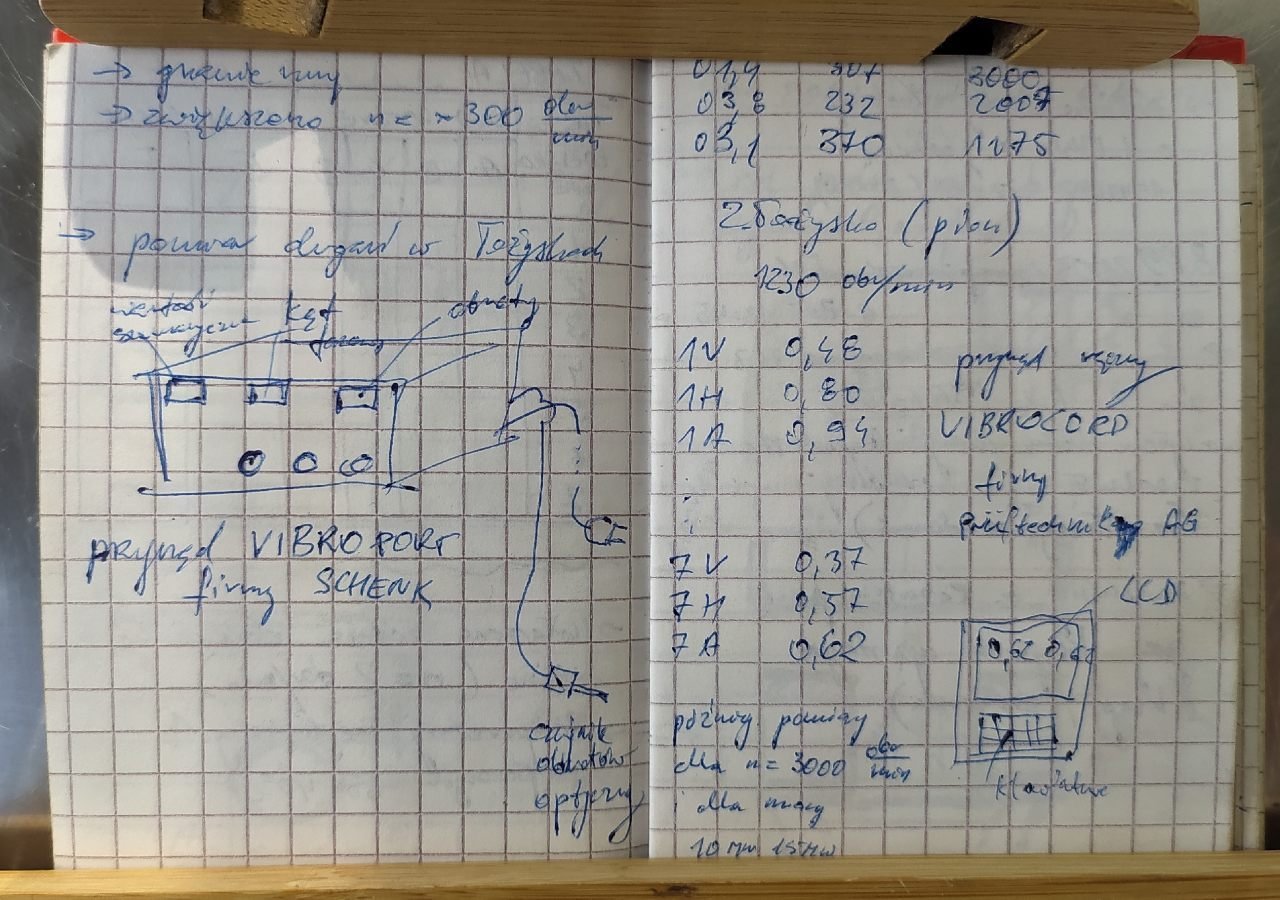 → grzanie
→ zwiększono n = ~ 300 obr/min
→ pomiar drgań w łożyskach
wartości
kąt
fazowy
obroty
przyrząd VIBROPORT
firmy SCHENK
czujnik
obrotów
optyczny
01,4 307 3000
03,8 232 2007
03,1 370 1175
2. Łożysko (pion)
1230 obr/min
1V 0,48
1H 0,80
1A 0,94
przyrząd ręczny
VIBROCORD
firmy
Prüftechnik AG
7V 0,37
7H 0,57
7A 0,62
LCD
0,62 0,62
klawiatura
później pomiary
dla n = 3000 obr/min
i dla mocy
10 MW 15 MW